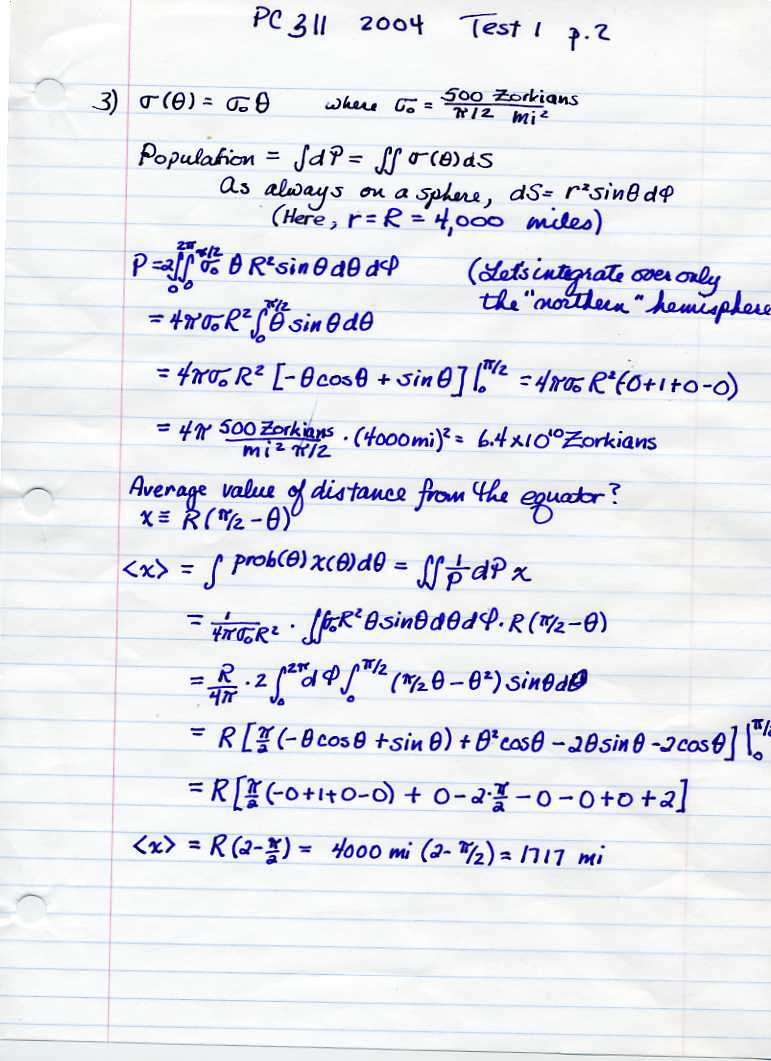 PC 311 2004 Test 1 p.2
3) σ(θ) = σ₀ θ where σ₀ = 500 Zorkians / π/2 mi²
Population = ∫dP = ∬ σ(θ)dS
As always on a sphere, dS = r² sinθ dφ
(Here, r = R = 4,000 miles)
P = 2∫₀^2π ∫₀^π/2 σ₀ θ R² sin θ dθ dφ (Let's integrate over only
the "northern" hemisphere
= 4πσ₀R² ∫₀^π/2 θ sin θ dθ
= 4πσ₀ R² [-θ cos θ + sin θ] |₀^π/2 = 4πσ₀ R² (0+1+0-0)
= 4π 500 Zorkians / mi² π/2 · (4000 mi)² = 6.4 x 10¹⁰ Zorkians
Average value of distance from the equator?
x ≡ R(π/2 - θ)
<x> = ∫ prob(θ) x(θ) dθ = ∬ 1/P dP x
= 1/4πσ₀R² · ∬ σ₀R² θ sin θ dθ dφ · R(π/2 - θ)
= R/4π · 2 ∫₀^2π dφ ∫₀^π/2 (π/2 θ - θ²) sin θ dθ
= R [π/2 (-θ cos θ + sin θ) + θ² cos θ - 2θ sin θ - 2 cos θ] |₀^π/2
= R [π/2 (-0+1+0-0) + 0 - 2·π/2 - 0 - 0 + 0 + 2]
<x> = R(2 - π/2) = 4000 mi (2 - π/2) = 1717 mi